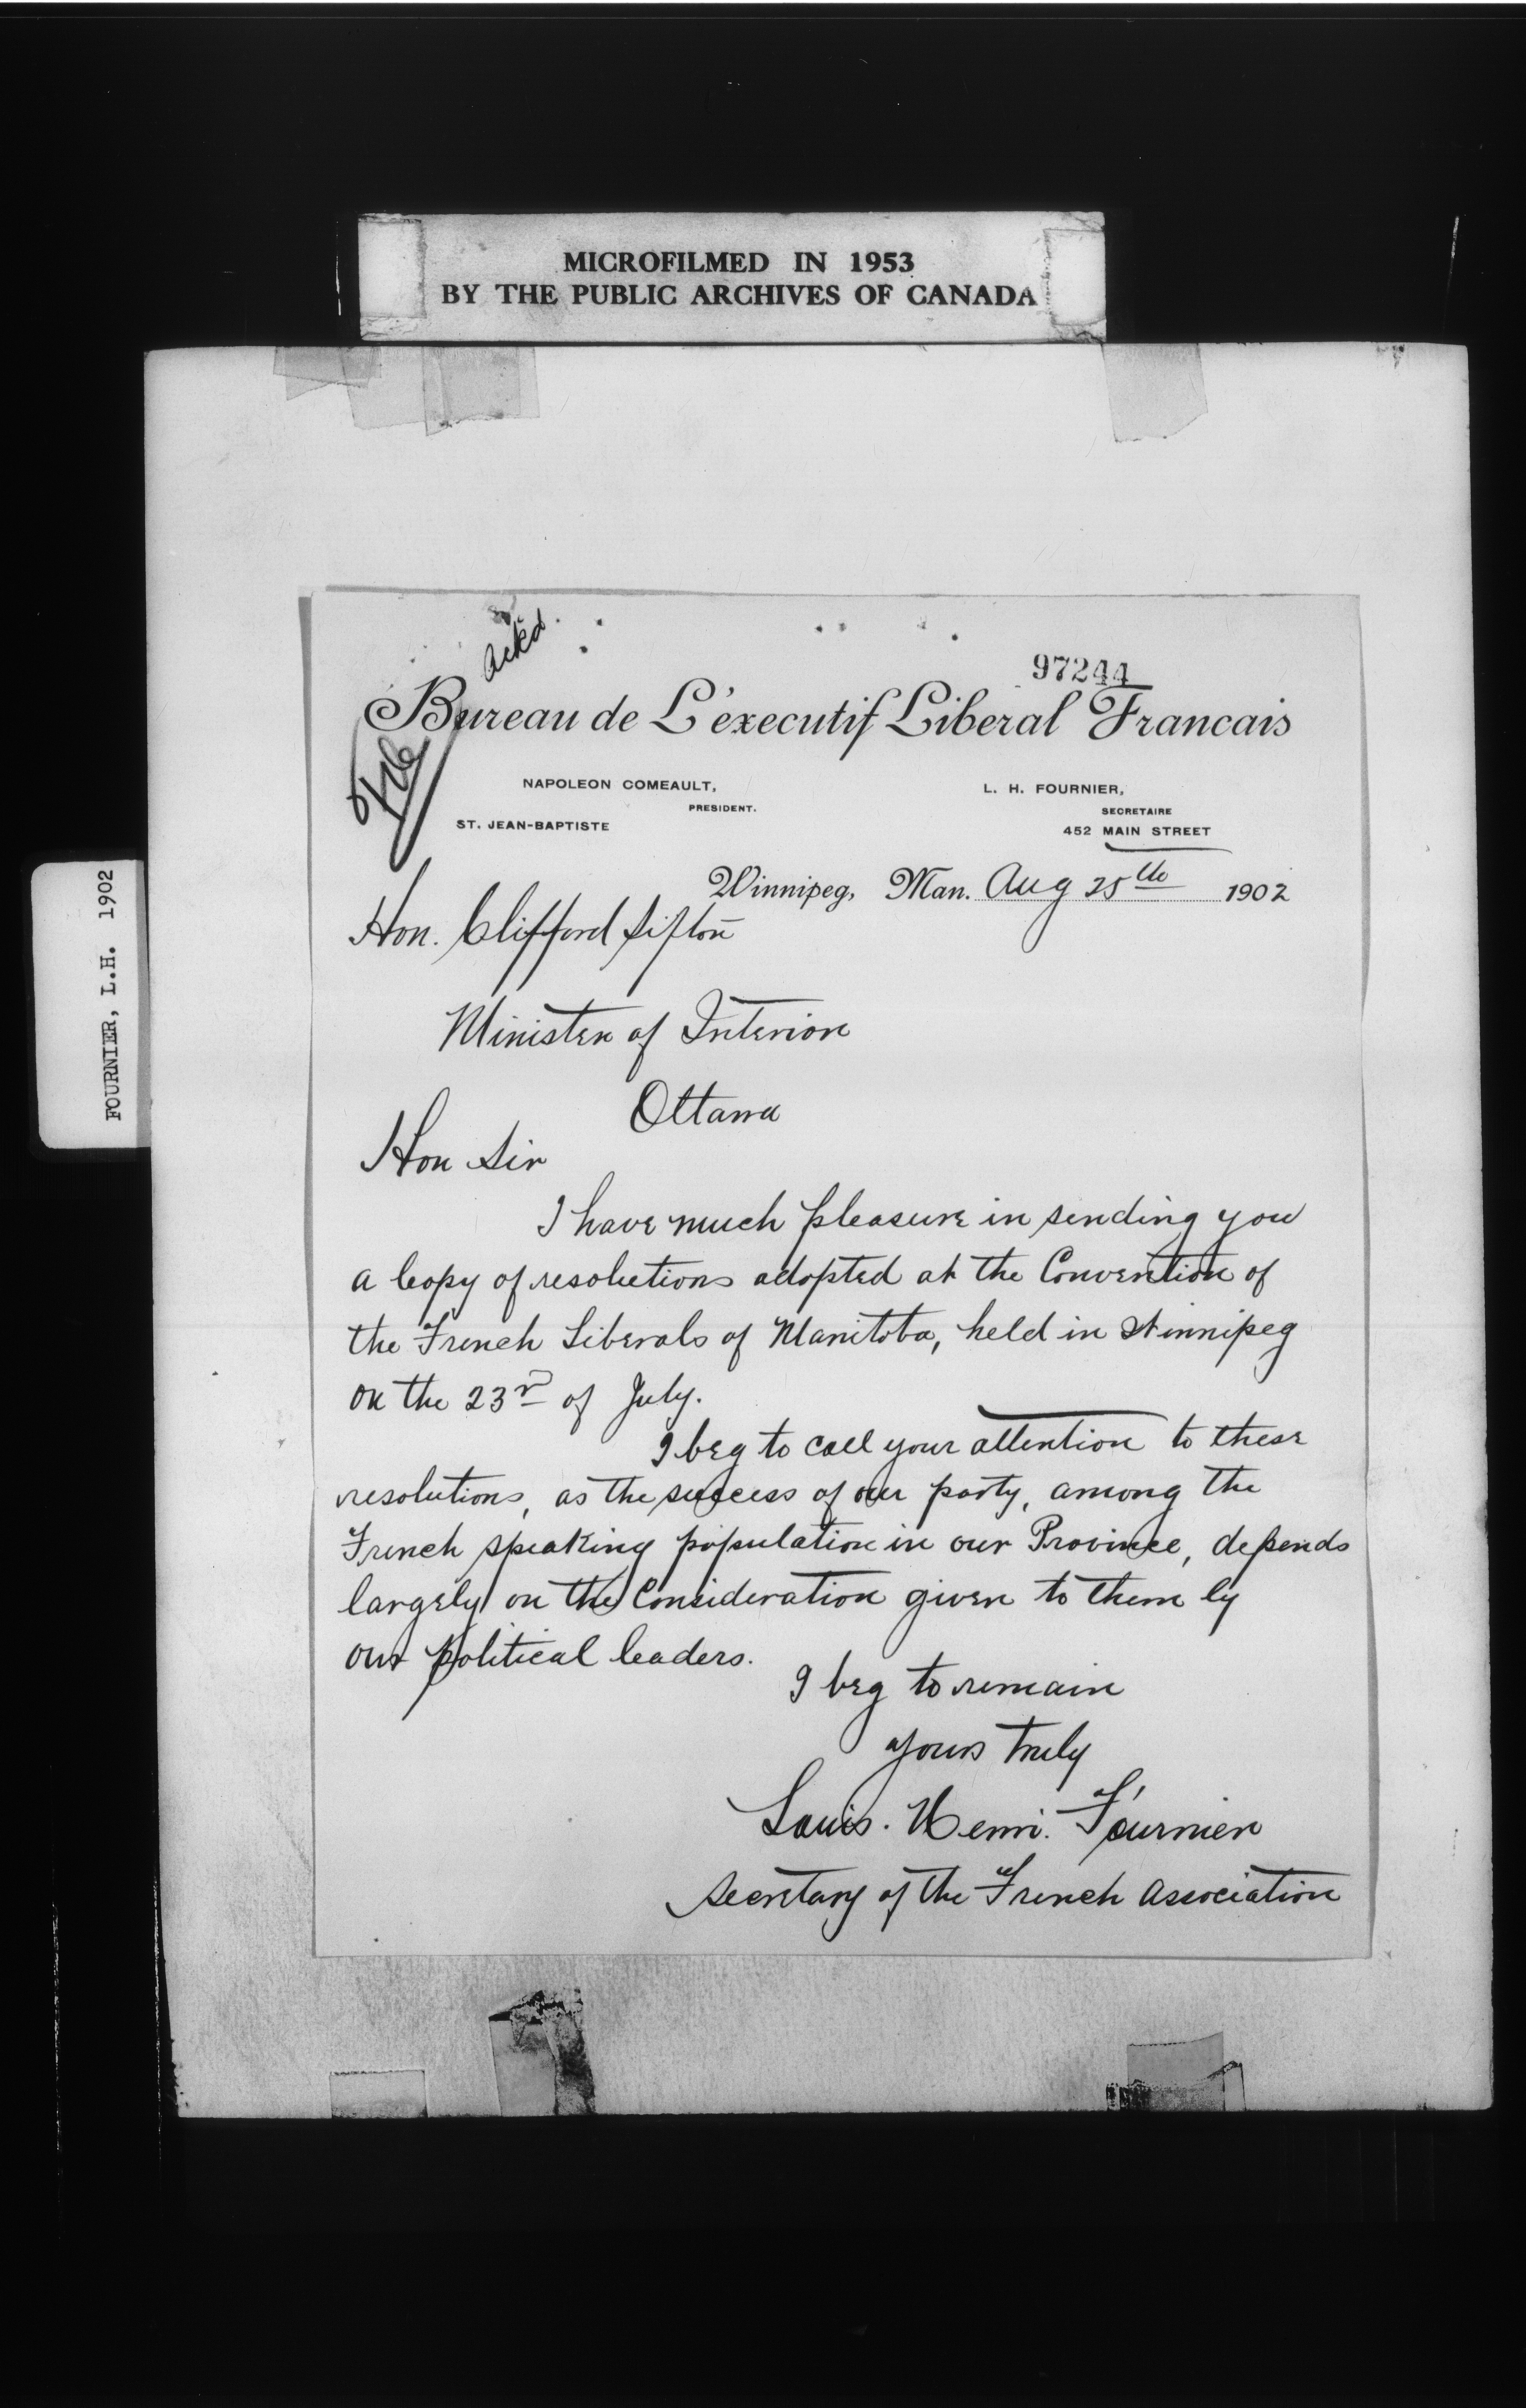 MICROFILMED IN 1953
BY THE PUBLIC ARCHIVES OF CANADA
FOURNIER, L.H. 1902
ackd.
97244
Bureau de L'éxecutif Liberal Francais
File
NAPOLEON COMEAULT,
PRESIDENT.
ST. JEAN-BAPTISTE
L. H. FOURNIER,
SECRETAIRE
452 MAIN STREET
Winnipeg, Man. Aug 25th 1902
Hon. Clifford Sifton
Minister of Interior
Ottawa
Hon Sir
I have much pleasure in sending you
a Copy of resolutions adopted at the Convention of
the French Liberals of Manitoba, held in Winnipeg
on the 23rd of July.
I beg to call your attention to these
resolutions, as the success of our party, among the
French speaking population in our Province, depends
largely on the Consideration given to them by
our political leaders.
I beg to remain
yours truly
Louis. Henri. Fournier
Secretary of the French Association